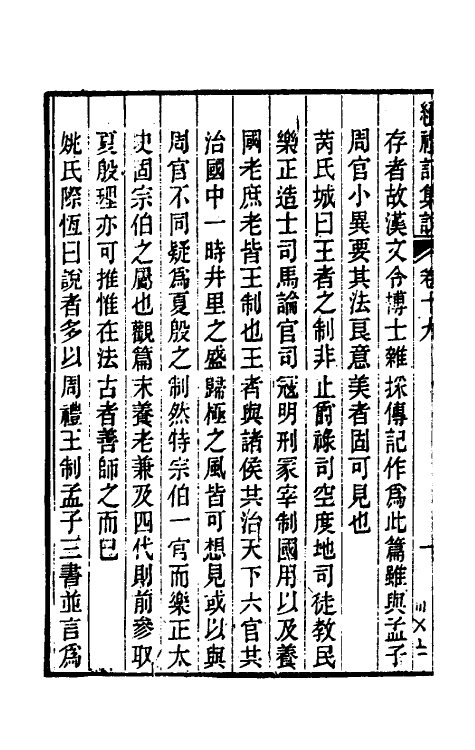 續禮記集說
卷十九
十
存者故漢文令博士雜採傳記作爲此篇雖與孟子
周官小異要其法良意美者固可見也
芮氏城曰王者之制非止爵祿司空度地司徒教民
樂正造士司馬論官司寇明刑冢宰制國用以及養
國老庶老皆王制也王者與諸侯共治天下六官共
治國中一時井里之盛歸極之風皆可想見或以與
周官不同疑爲夏殷之制然特宗伯一官而樂正太
史固宗伯之屬也觀篇末養老兼及四代則前參取
夏殷理亦可推惟在法古者善師之而已
姚氏際恆曰說者多以周禮王制孟子三書並言爲